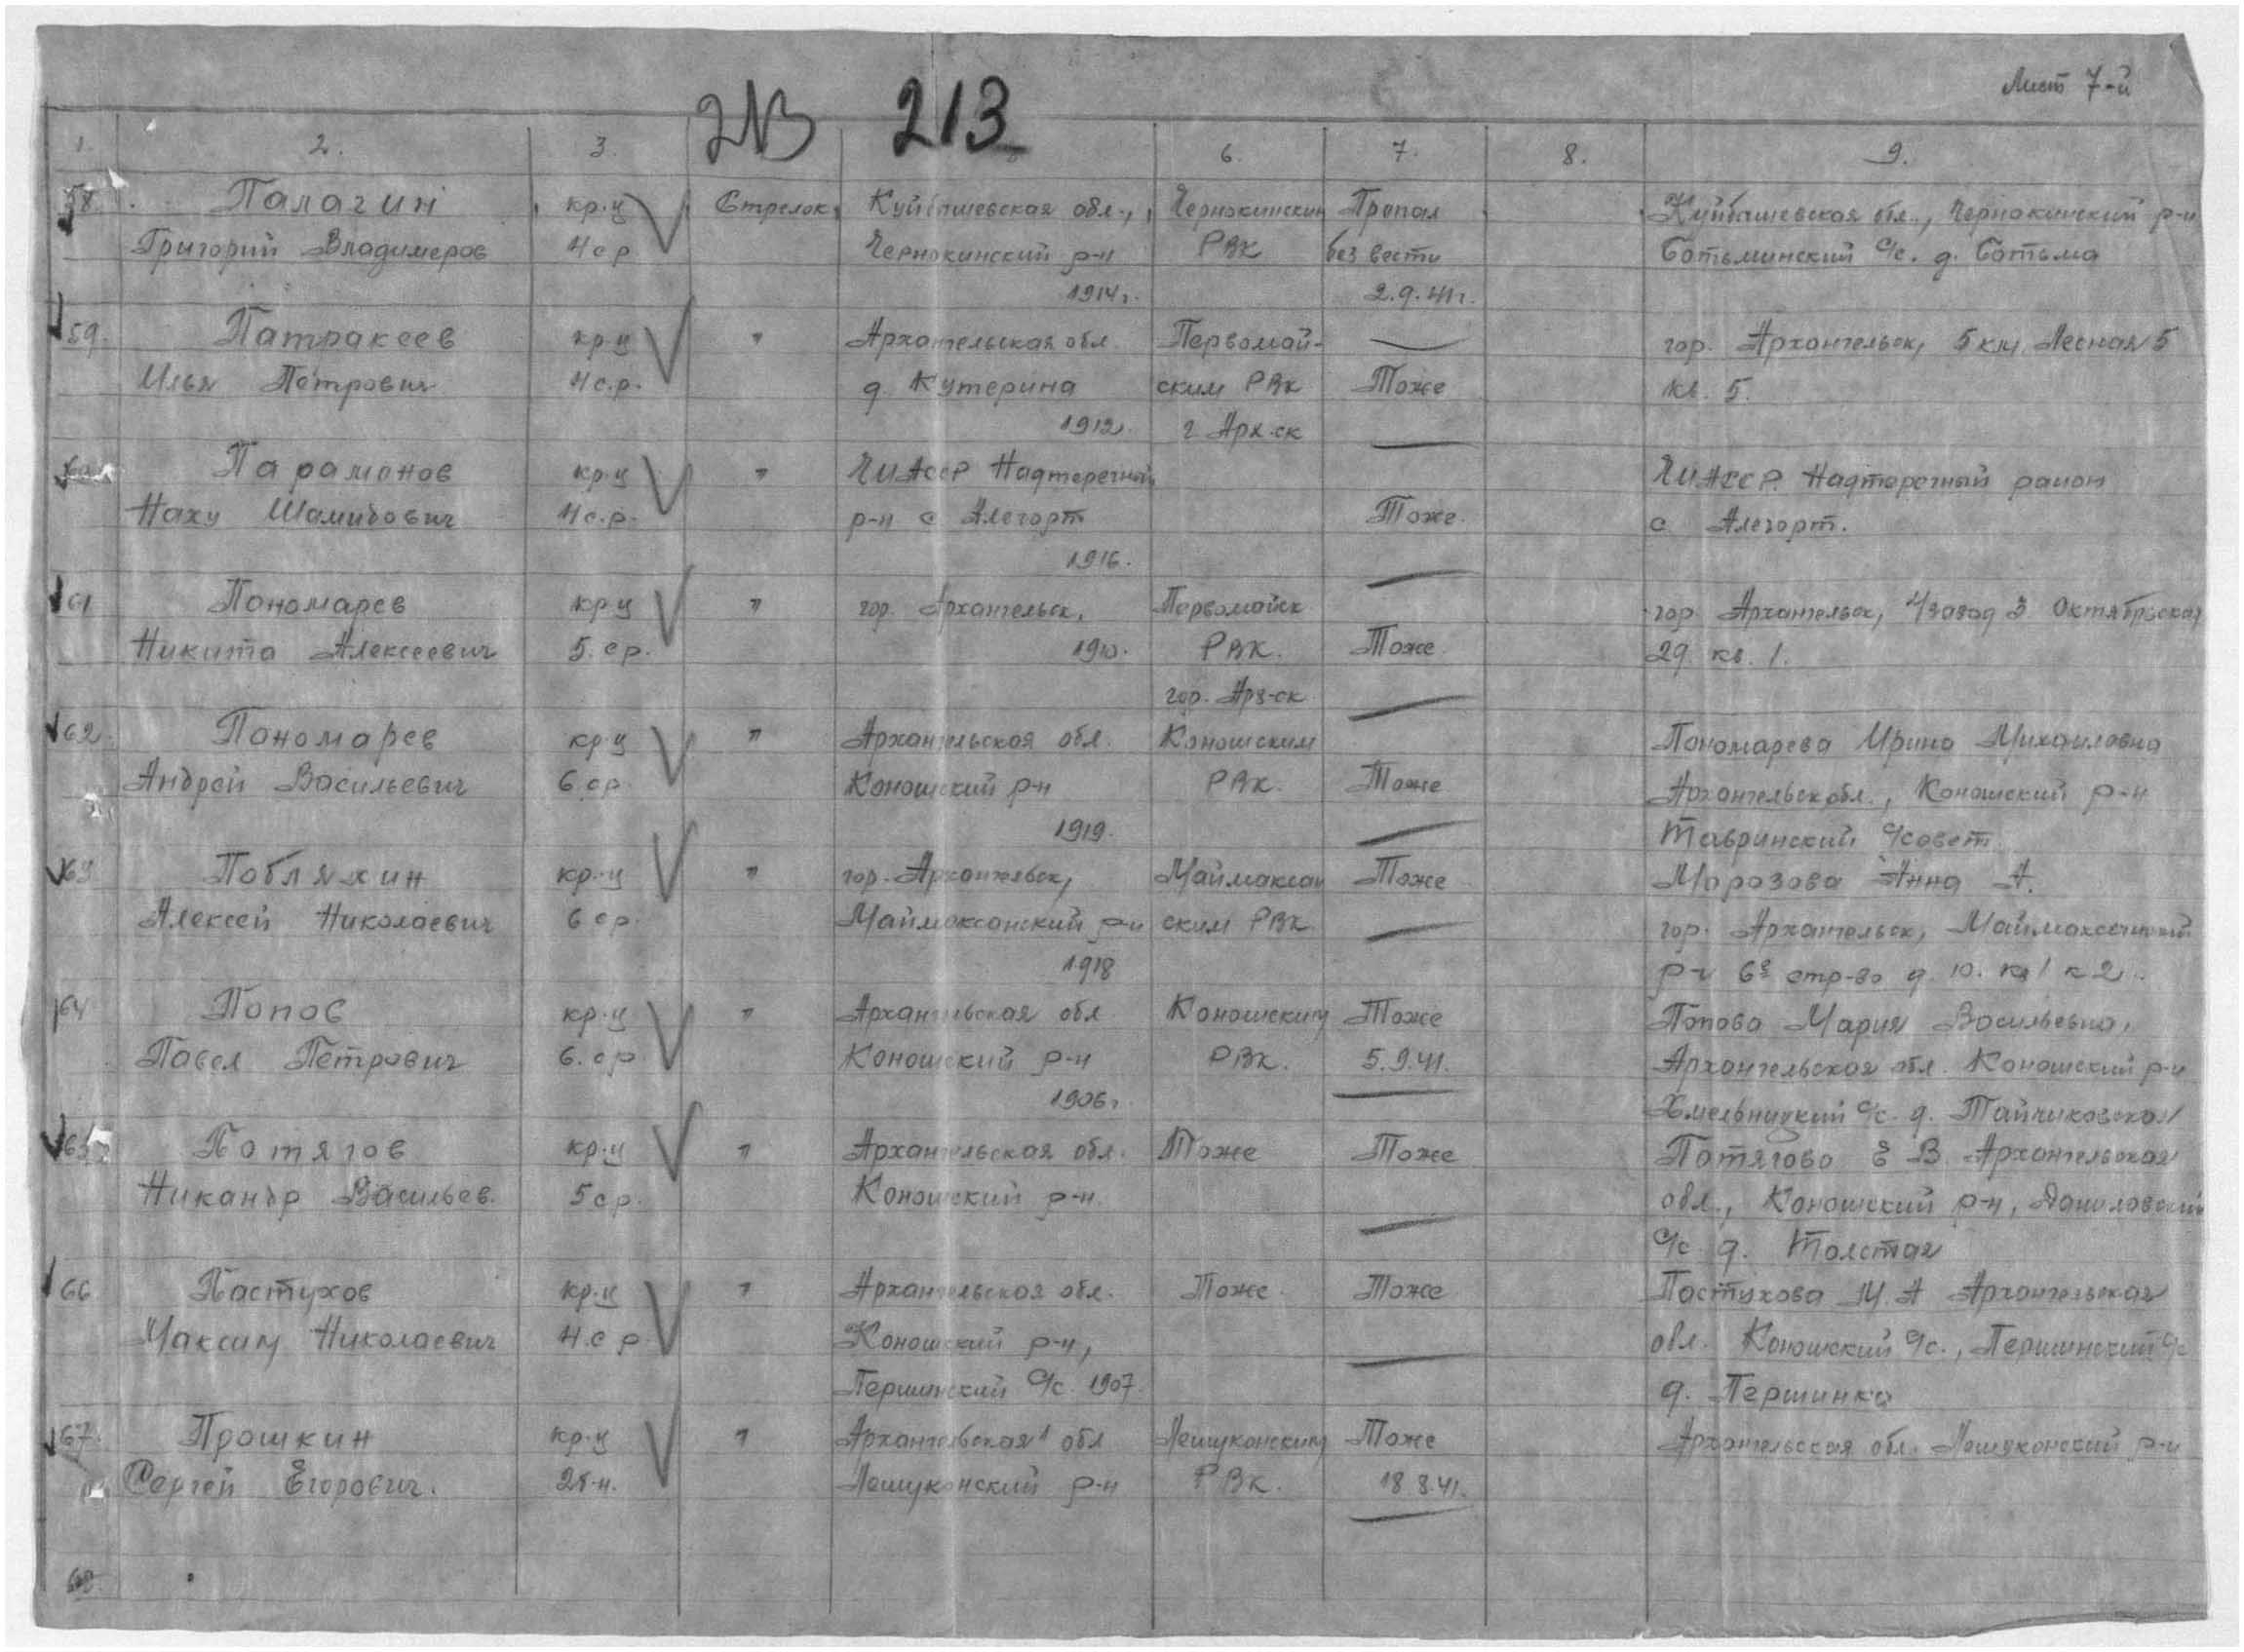 Лист 7-й
213 213
1. 2. 3. 6. 7. 8. 9.
58. Палагин кр-ц Стрелок Куйбашевская обл., Чернокинским Пропал Куйбашевская обл., Чернокинский р-н
Григорий Владимеров 4 ср. Чернокинский р-н РВК без вести Сотьминский с/с. д. Сотьма
1914г. 2.9.41г.
59. Патракеев кр-ц " Архангельская обл. Первомай- гор. Архангельск, 5 км. Лесная 5
Илья Петрович 4 с.р. д. Кутерина ским РВК Тоже кв. 5.
1912. г Арх-ск
Парамонов кр-ц " ЧИАССР Надтеречный ЧИАССР. Надтеречный район
Наху Шамидович 4 с.р. р-н с Алегорт Тоже. с Алегорт.
1916.
61 Пономарев кр-ц " гор. Архангельск, Первомайск гор. Архангельск, л/завод 3 Октябрьская
Никита Алексеевич 5. ср. 1910. РВК. Тоже. 29 кв. 1.
гор. Арх-ск
62. Пономарев кр-ц " Архангельская обл. Коношским Пономарева Ирина Михаиловна
Андрей Васильевич 6 ср. Коношский р-н РВК. Тоже Архангельск обл., Коношский р-н
1919. Тавринский с/совет
63 Побляхин кр-ц " гор. Архангельск, Маймаксан Тоже Морозова Анна А.
Алексей Николаевич 6 ср. Маймаксанский р-н ским РВК гор. Архангельск, Маймаксанский
1918 р-н 6е стр-во д. 10. кв 1 к 2.
64 Попов кр-ц " Архангельская обл Коношским Тоже Попова Мария Васильевна,
Павел Петрович 6. ср. Коношский р-н РВК. 5.9.41. Архангельская обл. Коношский р-н
1906г. Хмельницкий с/с. д. Тайчиковская
65 Потягов кр-ц " Архангельская обл. Тоже Тоже Потягова Е В Архангельская
Никандр Васильев. 5 ср. Коношский р-н. обл., Коношский р-н, Даниловский
с/с д. Толстая
66 Пастухов кр-ц " Архангельская обл. Тоже. Тоже Пастухова М. А Архангельская
Максим Николаевич 4. с р. Коношский р-н, обл. Коношский с/с., Першинский с/с
Першинский с/с. 1907. д. Першинка
67. Прошкин кр-ц " Архангельская обл Лешуконским Тоже Архангельская обл. Лешуконский р-н
Сергей Егорович. 2б-н. Лешуконский р-н РВК. 18 8.41.
68.